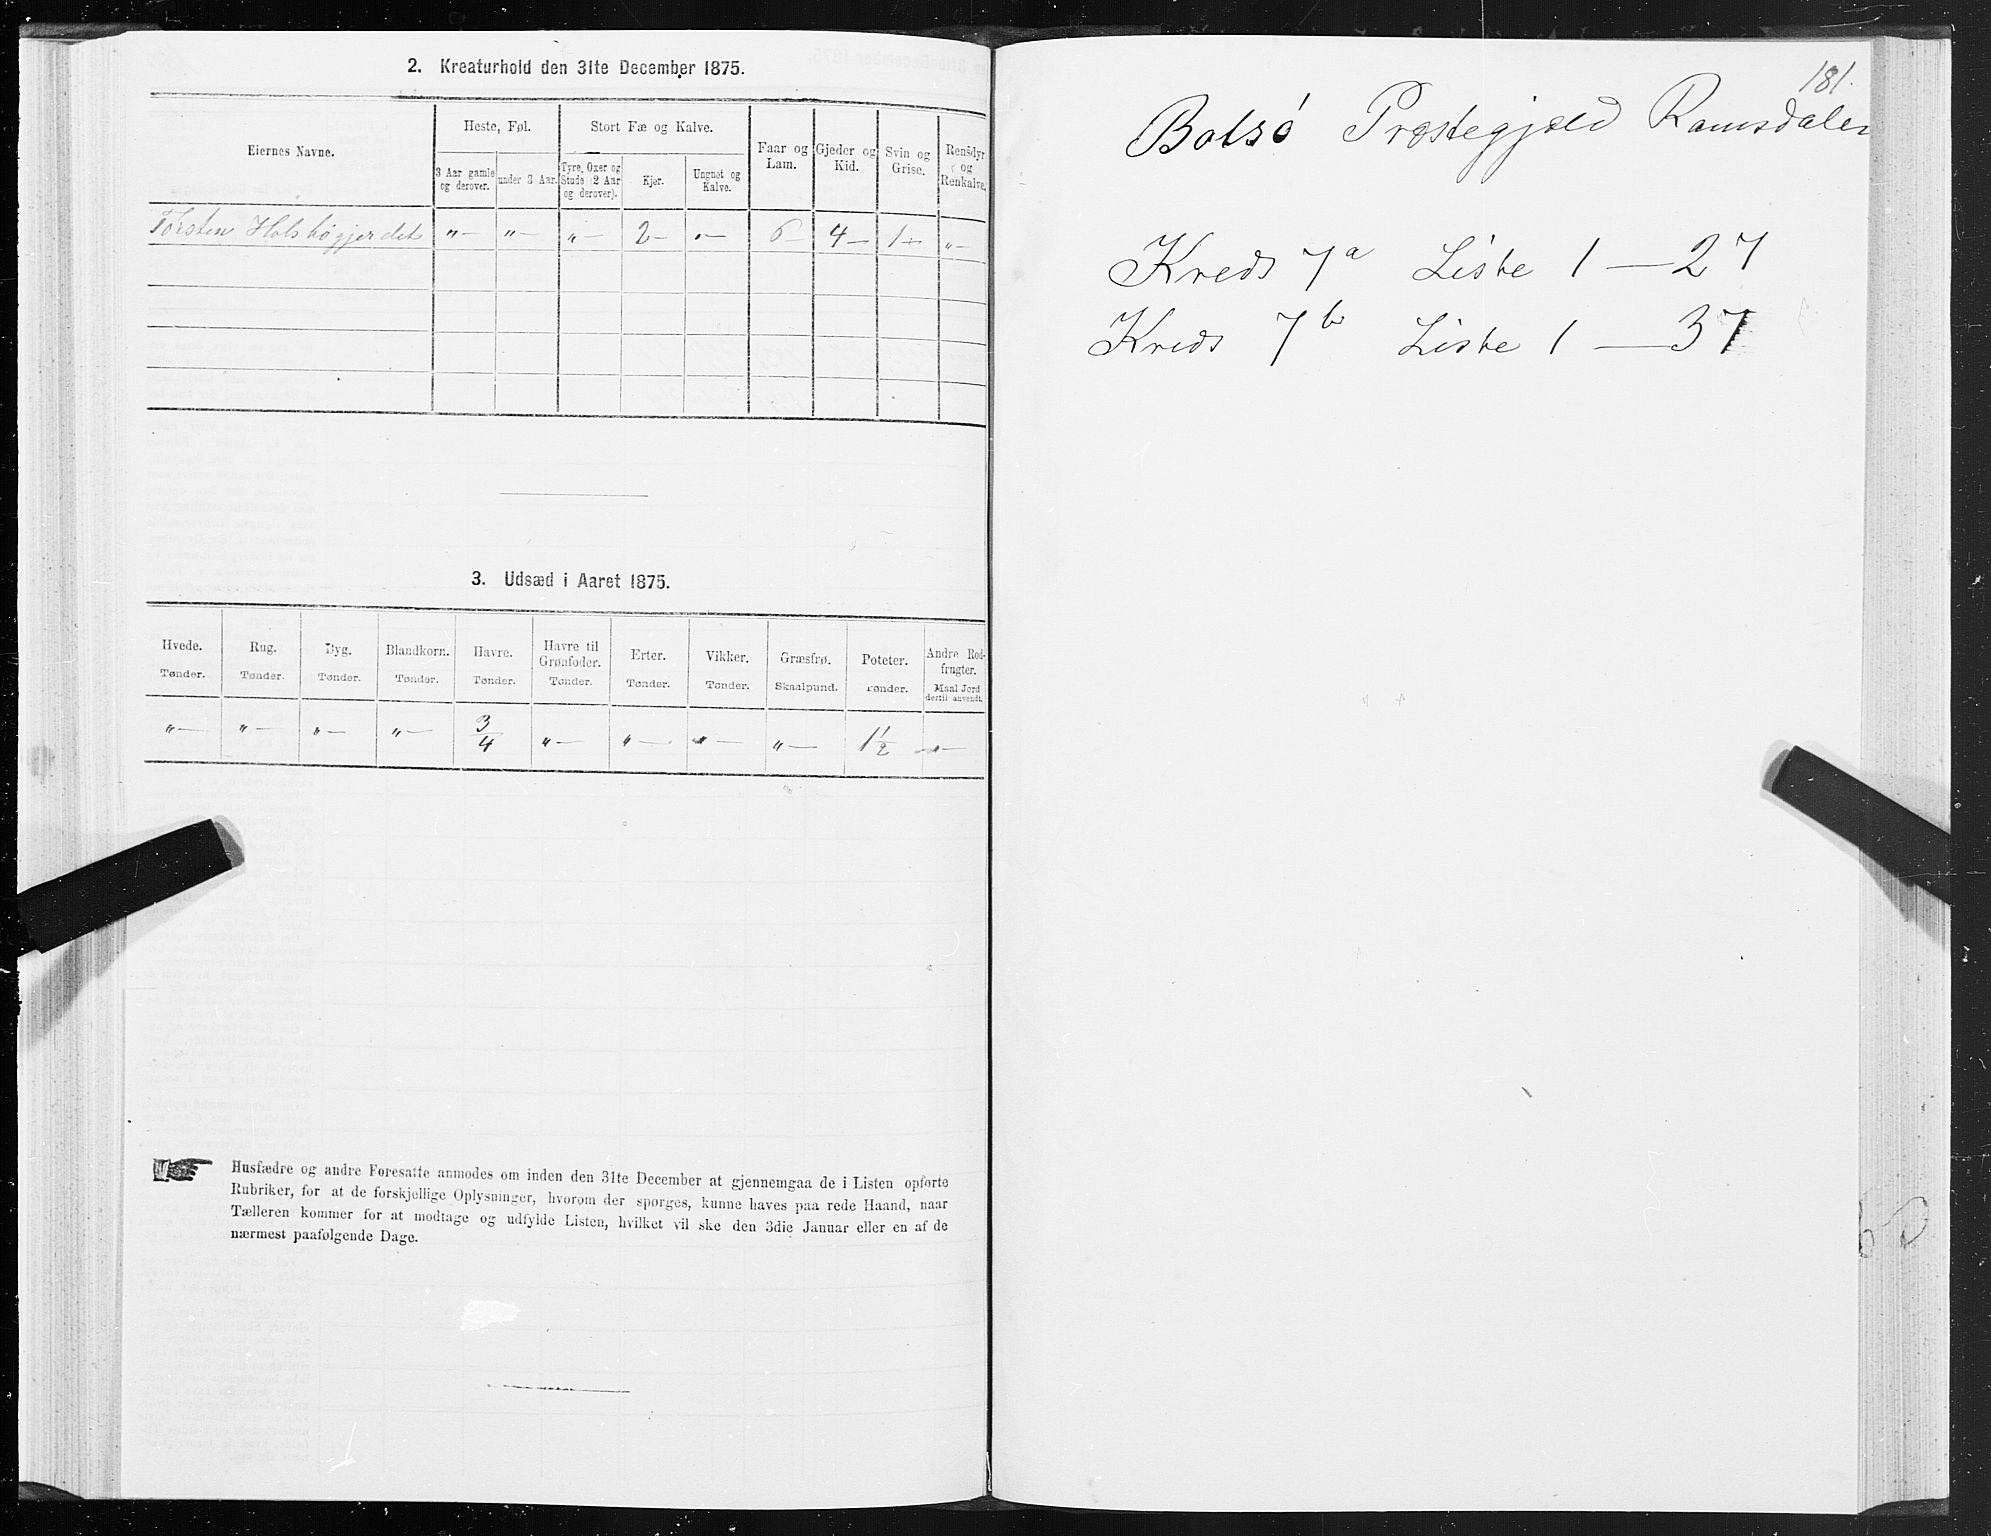 2. Kreaturhold den 31te December 1875.
Eiernes Navne.
Heste, Føl.
Stort Fæ og Kalve.
Faar og Lam.
Gjeder og Kid.
Svin og Grise.
Rensdyr og Renkalve.
3 Aar gamle og derover.
under 3 Aar.
Tyre, Oxer og Stude (2 Aar og derover).
Kjør.
Ungnøt og Kalve.
Torsten Holshøgjerdet " — " — " — 2 — " — 6 — 4 — 1 — " —
3. Udsæd i Aaret 1875.
Hvede. Rug. Byg. Blandkorn. Havre. Havre til Grønfoder. Erter. Vikker. Græsfrø. Poteter. Andre Rodfrugter.
Tønder. Tønder. Tønder. Tønder. Tønder. Tønder. Tønder. Tønder. Skaalpund. Tønder. Maal Jord dertil anvendt.
" — " — " — " — 3/4 " — " — " — " — 1 1/2 " —
Husfædre og andre Foresatte anmodes om inden den 31te December at gjennemgaa de i Listen opførte
Rubriker, for at de forskjellige Oplysninger, hvorom der spørges, kunne haves paa rede Haand, naar
Tælleren kommer for at modtage og udfylde Listen, hvilket vil ske den 3die Januar eller en af de
nærmest paafølgende Dage.
181.
Bolsø Præstegjæld Romsdalen
Kreds 7a Liste 1 — 27
Kreds 7b Liste 1 — 37